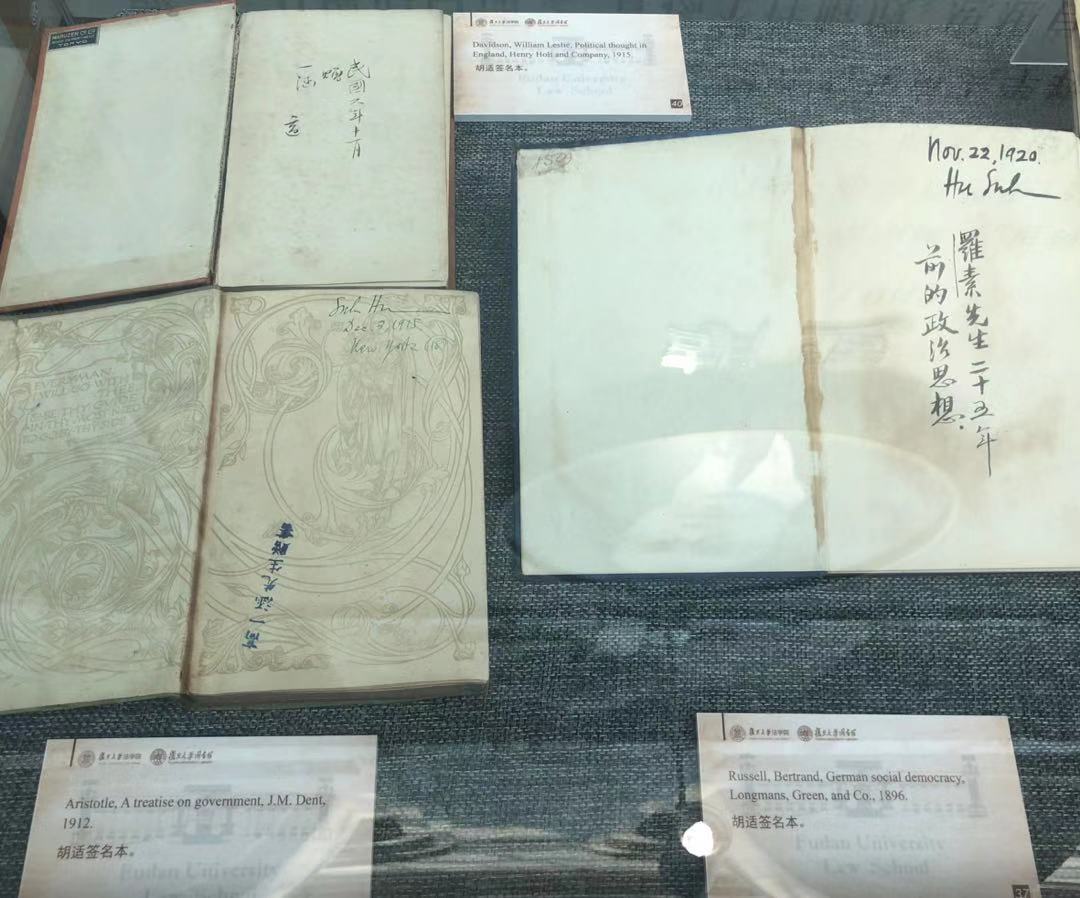 MARUZEN CO. LTD.
TOKYO
民國八年十一月
贈
一涵
适
復旦大學法学院
復旦大學圖書館
Davidson, William Leslie, Political thought in
England, Henry Holt and Company, 1915.
胡适签名本。
Fudan University
Law School
40
Nov. 22, 1920.
Hu Suh
羅素先生二十五年
前的政治思想.
Suh Hu
Dec. 3, 1915
New York City
EVERYMAN,
I WILL GO WITH
THEE
& BE THY GUIDE
IN THY MOST NEED
TO GO BY THY SIDE
高一涵先生賠書
復旦大學法学院
復旦大學圖書館
Aristotle, A treatise on government, J.M. Dent,
1912.
胡适签名本。
Fudan University
Law School
復旦大學法学院
復旦大學圖書館
Russell, Bertrand, German social democracy,
Longmans, Green, and Co., 1896.
胡适签名本。
Fudan University
Law School
37